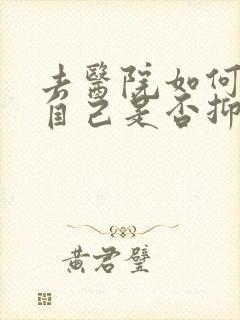 去醫院如何
自己是否抑
黃君璧